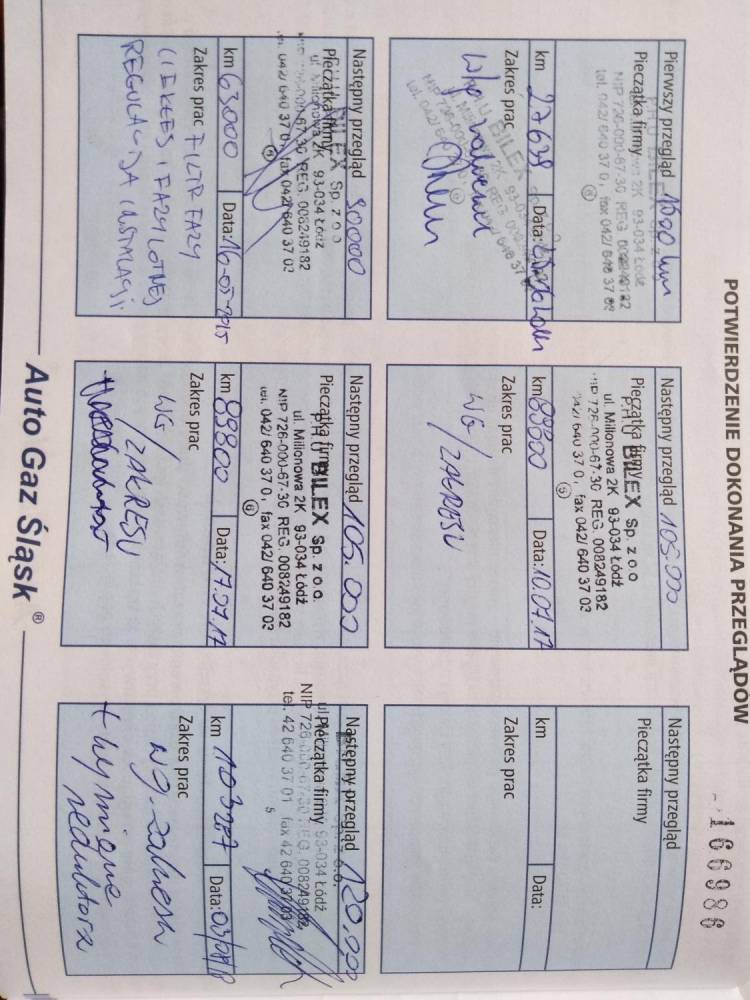 POTWIERDZENIE DOKONANIA PRZEGLĄDÓW
166986
Pierwszy przegląd
Pieczątka firmy
PHU BILEX Sp. z o.o.
ul. Milionowa 2K 93-034 Łódź
NIP 726-000-67-30 REG. 008249182
tel. 042/ 640 37 0 , fax 042/ 640 37 03
km 27638 Data:
Zakres prac
Następny przegląd 105.000
Pieczątka firmy
PHU BILEX Sp. z o.o.
ul. Milionowa 2K 93-034 Łódź
NIP 726-000-67-30 REG. 008249182
tel. 042/ 640 37 0 , fax 042/ 640 37 03
km 88800 Data: 10.07.17
Zakres prac
WG/ZAKRESU
Następny przegląd
Pieczątka firmy
km Data:
Zakres prac
Następny przegląd 90000
Pieczątka firmy
BILEX Sp. z o.o
ul. Milionowa 2K 93-034 Łódź
NIP 726-000-67-30 REG. 008249182
tel. 042/ 640 37 0 , fax 042/ 640 37 03
km 63000 Data: 16-05-2015
Zakres prac FILTR FAZY
CIEKŁEJ I FAZY LOTNEJ
REGULACJA INSTALACJI
Następny przegląd 105.000
Pieczątka firmy
PHU BILEX Sp. z o.o.
ul. Milionowa 2K 93-034 Łódź
NIP 726-000-67-30 REG. 008249182
tel. 042/ 640 37 0 , fax 042/ 640 37 03
km 89800 Data: 17.07.17
Zakres prac
WG/ZAKRESU
Następny przegląd 120.000
Pieczątka firmy
93-034 Łódź
NIP 726-000-67-30 REG. 008249182
tel. 42 640 37 01 fax 42 640 37 03
km 103287 Data:
Zakres prac
wg. zakresu
+ wymiana
reduktora
Auto Gaz Śląsk ®
Auto